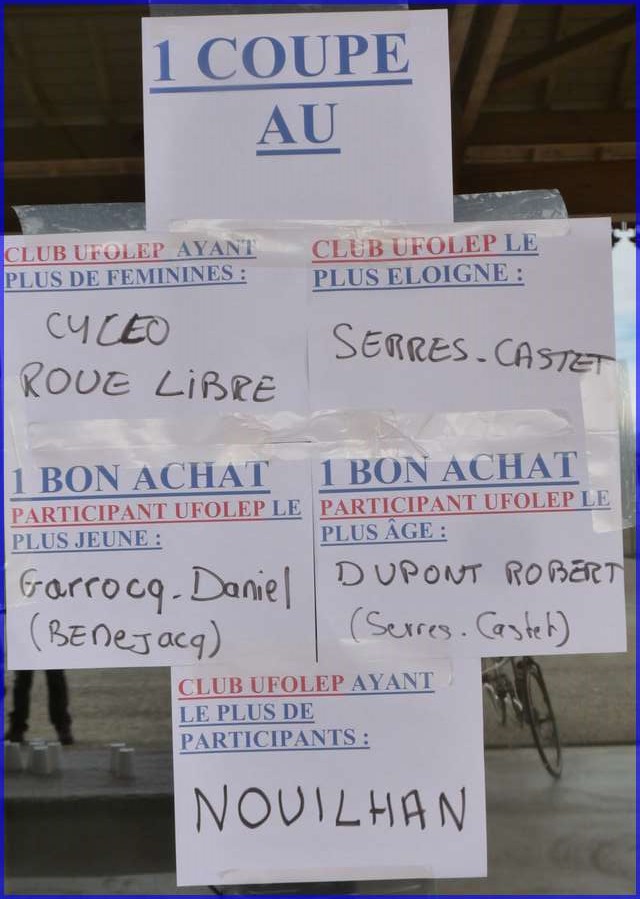 1 COUPE
AU
CLUB UFOLEP AYANT
PLUS DE FEMININES :
CYCLEO
ROUE LIBRE
CLUB UFOLEP LE
PLUS ELOIGNE :
SERRES-CASTET
1 BON ACHAT
PARTICIPANT UFOLEP LE
PLUS JEUNE :
Garrocq-Daniel
(BENEJACQ)
1 BON ACHAT
PARTICIPANT UFOLEP LE
PLUS ÂGE :
DUPONT ROBERT
(Serres-Castet)
CLUB UFOLEP AYANT
LE PLUS DE
PARTICIPANTS :
NOUILHAN